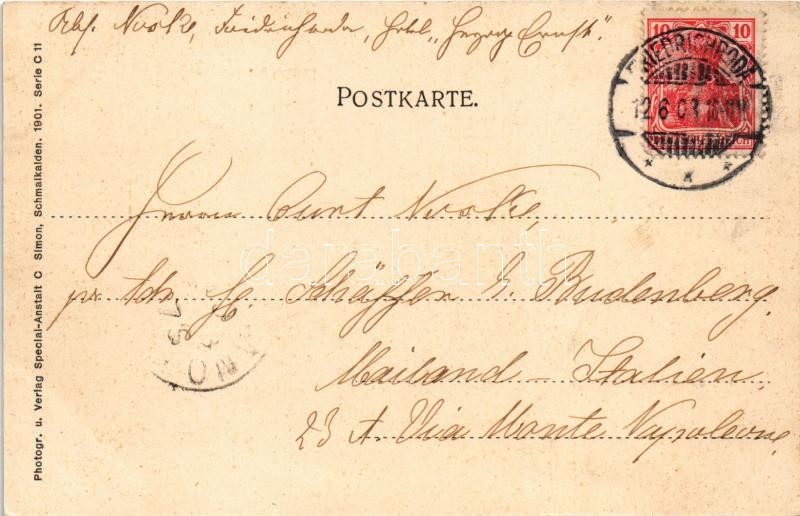 Abs. Noske, Friedrichroda, Hotel „Herzog Ernst".
10 10
FRIEDRICHRODA
12 6 03 10-11V
POSTKARTE.
Herrn Curt Noske,
pr. Adr. H. Schäffer & Budenberg.
Mailand – Italien.
23 A. Via Monte Napoleone,
Photogr. u. Verlag Special-Anstalt C Simon, Schmalkalden. 1901. Serie C 11
darabanth